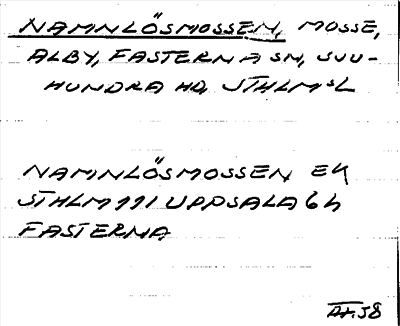 NAMNLÖSMOSSEN, MOSSE,
ALBY, FASTERNA SN, SJU-
HUNDRA HD, STHLMS L
NAMNLÖSMOSSEN EK
STHLM 111 UPPSALA 6 h
FASTERNA